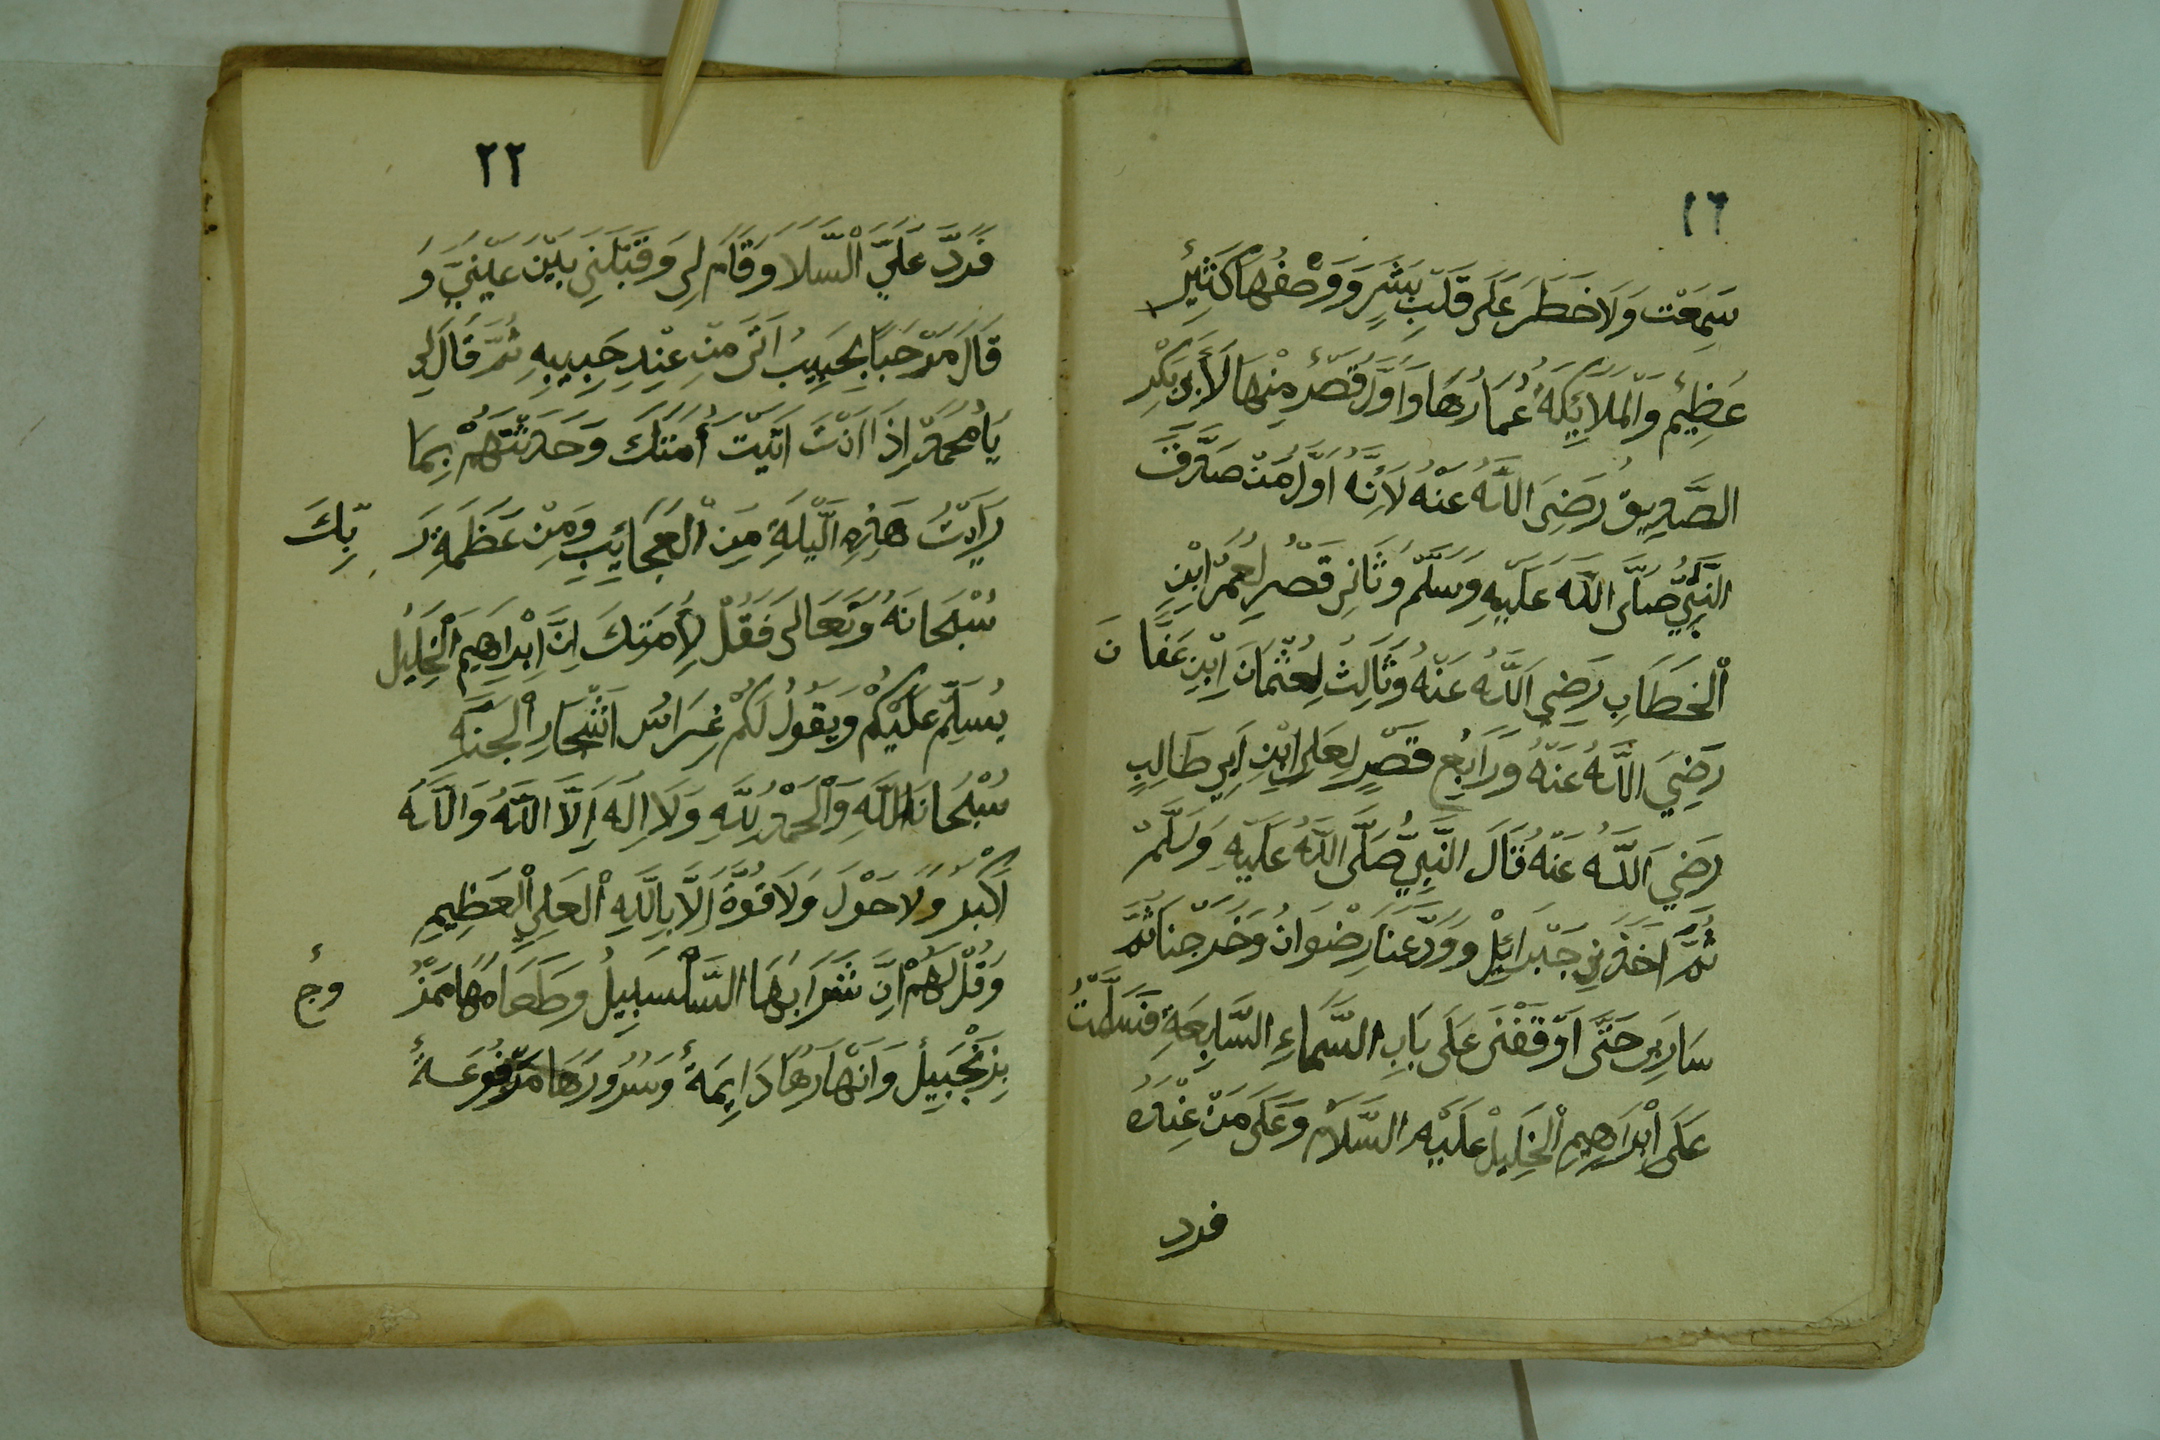 ٢٦
سَمِعَت وَلَا خَطَرَ عَلَى قَلْبِ بَشَرٍ وَوَصْفُهَا كَثِيرٌ
عَظِيمٌ وَالْمَلَائِكَةُ عُمَارُهَا وَاَوَّلُ قَصْرٌ مِنْهَا لَأَبِى بَكْرِ
الصَّدِيقُ رَضِىَ اللَّهُ عَنْهُ لَانَّهُ اَوَّلُ مَنْ صَدَّقَ
النَّبِيُّ صَلَّى اللَّهُ عَلَيْهِ وَسَلَّمَ وَثَانِى قَصْرٍ لِعُمَرُ ابْنِ
الْخَطَابِ رَضِيَ اللَّهُ عَنْهُ وَثَالِثُ لِعُثْمَانَ اِبْنِ عَفَّانَ
رَضِيَ اللَّهُ عَنْهُ وَرَابِعُ قَصْرٍ لِعَلِى ابْنِ اَبِى طَالِبٍ
رَضِيَ اللَّهُ عَنْهُ قَالَ النَّبِيُّ صَلَّى اللَّهُ عَلَيْهِ وَسَلَّمْ
ثُمَّ اَخَذَنِى جَبْرَائِلْ وَوَدَّعَنَا رِضْوَانُ وَخَرَجْنَا ثُمَّ
سَارَبِى حَتَّى اَوْقَفَنَى عَلَى بَابِ السَّمَاءِ السَّابِعَةِ فَسَلَّمْتُ
عَلَى اْبْرَاهِيمِ الْخَلِيلْ عَلَيْهِ السَّلَامُ وَعَلَى مَنْ عِنْدَهُ
فرد
٢٢
فَرَدَّ عَلَيَّ الْسَّلَا وَقَامَ لِى وَقَبَّلَنِى بَيْنَ عَيْنَيَّ وَ
قَالَ مَرْحَبًا بِحَبِيبُ اَتَى مِنْ عِنْدِ حَبِيبِهِ ثُمَّ قَالَ لِى
يَا مُحَمَّدْ اِذَا اَنْتَ اَتَيْتَ أُمَتَكَ وَحَدَثْتَهُمْ بِمَا
رَاَيْتَ هَذِهِ الَّيْلَةِ مَِنَ الْعَجَايِبِ وَمِنْ عَظَمَةِ رَبِّكَ
سُبْحَانَهُ وَتَعَالَى فَقُلْ لِأُمَتِكَ اِنَّ اِبْرَاهِيمَ الْخَلِيلُ
يُسَلِّمْ عَلَيْكُمْ وَيَقُولُ لَكُمْ غِرَاسُ اَشْجَارِ الْجَنَةِ
سُبْحَانَ اللَّهِ وَالْحَمْدُ لِلَّهِ وَلَا اِلَهَ اِلَّا اللَّهُ وَاللَّهُ
اَكْبَرُ وَلَا حَوْلَ وَلَا قُوَّةَ اِلَّا بِاللَّهِ الْعَلِيِ الْعَظِيمِ
وَقُلْ لَهُمْ اَنَّ شَرَابَهَا السَّلْسَبِيلُ وَطَعَامُهَا مَمْزُوجٌ
بِزَنْجَبِيلْ وَاَنْهَارُهَا دَايِمَةٌ وَسُرُورُهَا مَرْفُوعَةٌ